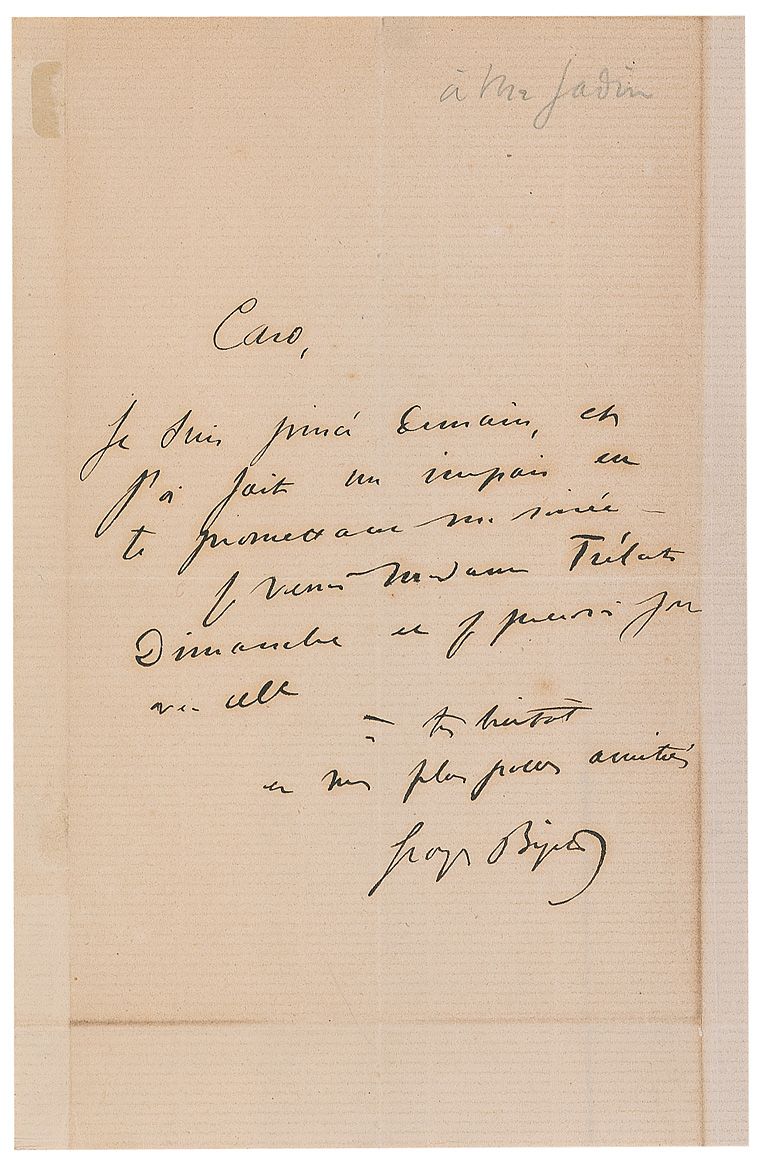 à Mr Jadin
Caro,
Je suis pincé demain, et
j'ai fait un impair en
te promettant ma soirée —
Je verrai Madame Trélat
Dimanche et je
avec elle
à très bientôt
et mes plus amitiés
Georges Bizet